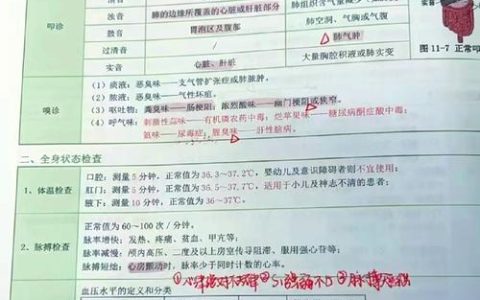 叩诊
浊音
肺的边缘所覆盖的心脏或肝脏部分
鼓音
胃泡区及腹部
肺空洞、气胸或气腹
过清音
肺气肿
实音
心脏、肝脏
大量胸腔积液或肺实变
实音
图 11-7 正常叩
嗅诊
(1)痰液:恶臭味——支气管扩张症或肺脓肿。
(2)脓液:恶臭味——气性坏疽。
(3)呕吐物:粪臭味——肠梗阻;浓烈酸味——幽门梗阻或狭窄。
(4)呼气味:刺激性蒜味——有机磷农药中毒;烂苹果味——糖尿病酮症酸中毒;
氨味——尿毒症;腥臭味——肝性脑病。
二、全身状态检查
1. 体温检查
口腔:测量 5 分钟,正常值为 36.3~37.2℃,婴幼儿及意识障碍者则不宜使用;
肛门:测量 5 分钟,正常值为 36.5~37.7℃,适用于小儿及神志不清的患者;
腋下:测量 10 分钟,正常值为 36~37℃。
2. 脉搏检查
正常值为 60~100 次/分钟。
脉率增快:发热、疼痛、贫血、甲亢等;
脉率减慢:颅内高压、二度及以上房室传导阻滞、服用强心苷等;
脉搏短绌:心房颤动时,脉率少于同时计数的心率。
血压水平的定义和分类